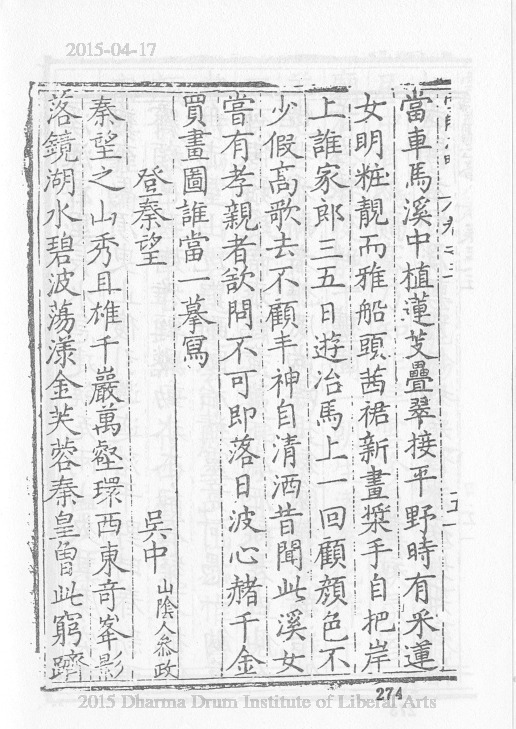 2015-04-17
當車馬溪中植蓮芰疊翠接平野時有采蓮
女明粧靚而雅船頭茜裙新畫槳手自把岸
上誰家郎三五日遊冶馬上一回顧顏色不
少假高歌去不顧丰神自清洒昔聞此溪女
嘗有孝親者欲問不可即落日波心赭千金
買畫圖誰當一摹寫
登秦望 吳中 山陰人叅政
秦望之山秀且雄千巖萬壑環西東竒峯影
落鏡湖水碧波蕩漾金芙蓉秦皇曾此窮躋
274
2015 Dharma Drum Institute of Liberal Arts